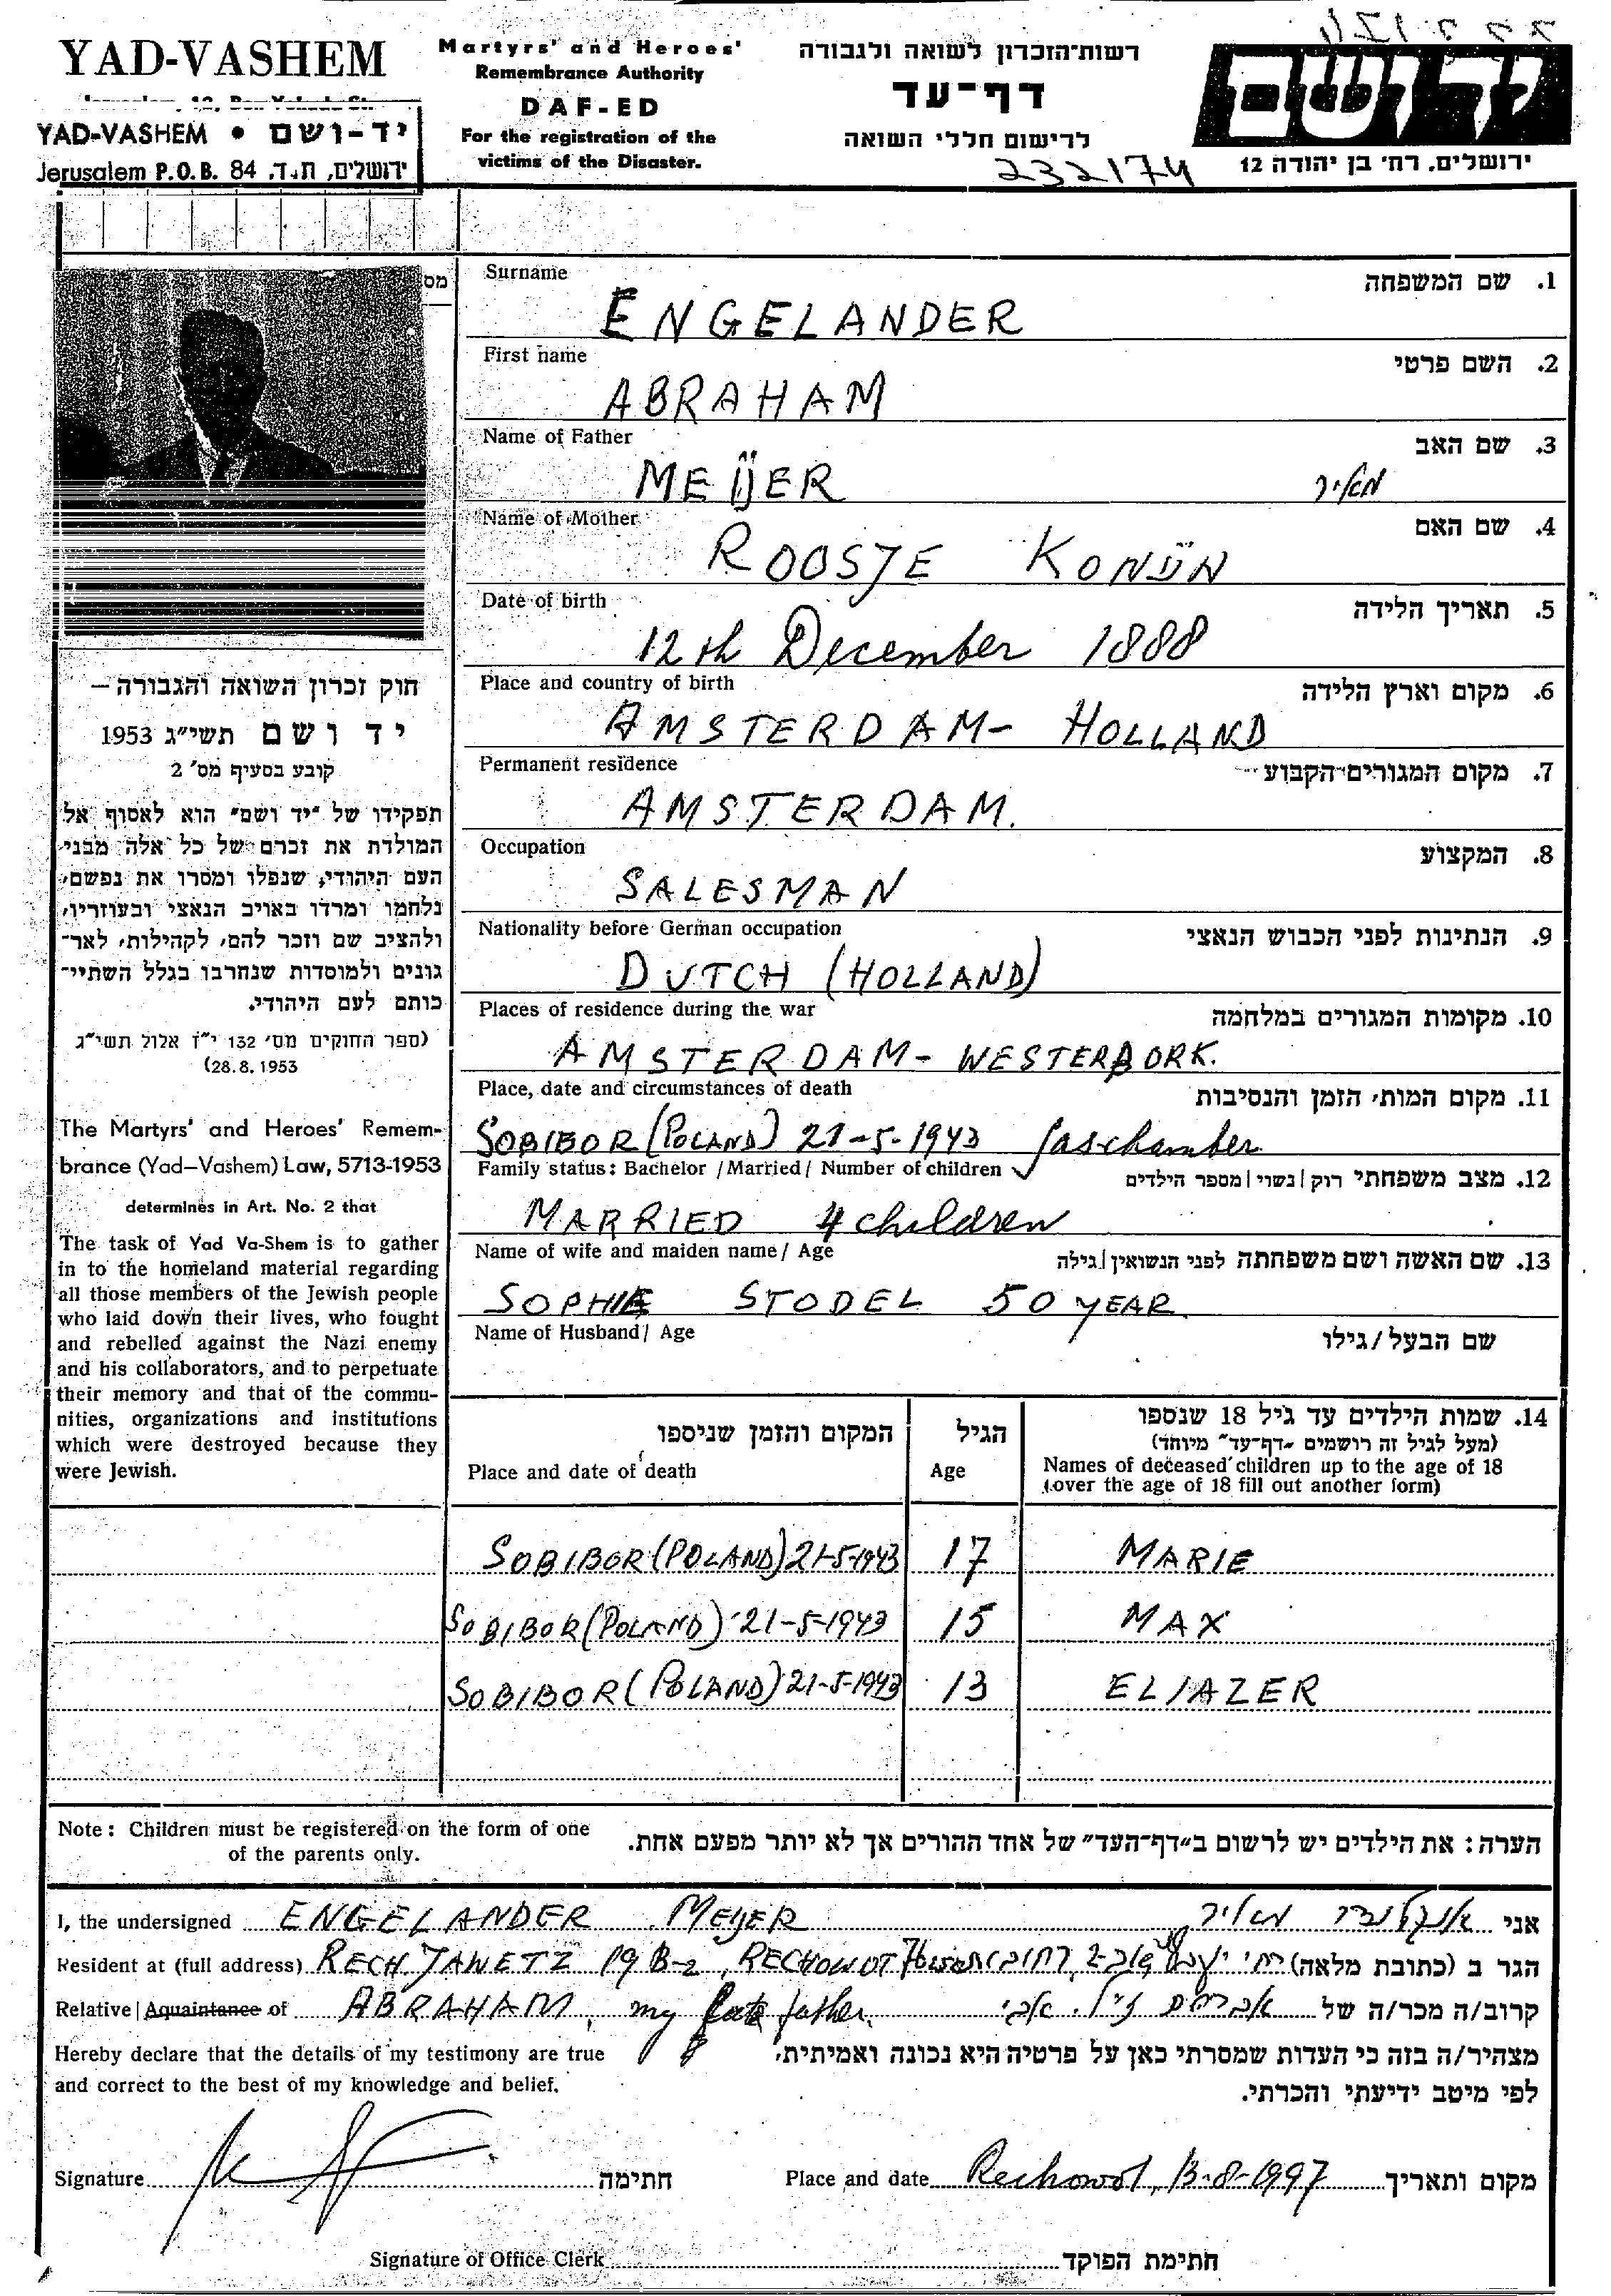 YAD-VASHEM
YAD-VASHEM • יד-ושם
Jerusalem P.O.B. 84 .ירושלים, ת.ד
Martyrs' and Heroes'
Remembrance Authority
DAF-ED
For the registration of the
victims of the Disaster.
רשות־הזכרון לשואה ולגבורה
דף־עד
לרישום חללי השואה
232174
יד ושם
ירושלים, רח׳ בן יהודה 12
מס
חוק זכרון השואה והגבורה –
יד ושם תשי״ג 1953
קובע בסעיף מס׳ 2
תפקידו של ״יד ושם״ הוא לאסוף אל
המולדת את זכרם של כל אלה מבני
העם היהודי, שנפלו ומסרו את נפשם,
נלחמו ומרדו באויב הנאצי ובעוזריו,
ולהציב שם וזכר להם, לקהילות, לאר־
גונים ולמוסדות שנחרבו בגלל השתיי־
כותם לעם היהודי.
(ספר החוקים מס׳ 132 י״ז אלול תשי״ג
28.8.1953)
The Martyrs' and Heroes' Remem-
brance (Yad-Vashem) Law, 5713-1953
determines in Art. No. 2 that
The task of Yad Va-Shem is to gather
in to the homeland material regarding
all those members of the Jewish people
who laid down their lives, who fought
and rebelled against the Nazi enemy
and his collaborators, and to perpetuate
their memory and that of the commu-
nities, organizations and institutions
which were destroyed because they
were Jewish.
Surname 1. שם המשפחה
ENGELANDER
First name 2. השם פרטי
ABRAHAM
Name of Father 3. שם האב
MEIJER מאיר
Name of Mother 4. שם האם
ROOSJE KONIJN
Date of birth 5. תאריך הלידה
12th December 1888
Place and country of birth 6. מקום וארץ הלידה
AMSTERDAM- HOLLAND
Permanent residence 7. מקום המגורים הקבוע
AMSTERDAM.
Occupation 8. המקצוע
SALESMAN
Nationality before German occupation 9. הנתינות לפני הכבוש הנאצי
DUTCH (HOLLAND)
Places of residence during the war 10. מקומות המגורים במלחמה
AMSTERDAM- WESTERBORK.
Place, date and circumstances of death 11. מקום המות, הזמן והנסיבות
SOBIBOR (POLAND) 21-5-1943 gaschamber
Family status: Bachelor / Married / Number of children 12. מצב משפחתי רוק | נשוי | מספר הילדים
MARRIED 4 children
Name of wife and maiden name / Age 13. שם האשה ושם משפחתה לפני הנשואין | גילה
SOPHIE STODEL 50 YEAR
Name of Husband / Age שם הבעל / גילו
14. שמות הילדים עד גיל 18 שנספו
(מעל לגיל זה רושמים ״דף־עד״ מיוחד)
Names of deceased children up to the age of 18
(over the age of 18 fill out another form)
הגיל
Age
המקום והזמן שניספו
Place and date of death
SOBIBOR (POLAND) 21-5-1943 17 MARIE
SOBIBOR (POLAND) 21-5-1943 15 MAX
SOBIBOR (POLAND) 21-5-1943 13 ELIAZER
Note: Children must be registered on the form of one
of the parents only.
הערה: את הילדים יש לרשום ב״דף־העד״ של אחד ההורים אך לא יותר מפעם אחת.
I, the undersigned ENGELANDER MEIJER אנגלנדר מאיר אני
Resident at (full address) RECH. JAWETZ 19 B-2, RECHOWOT הגר ב (כתובת מלאה)
Relative | Aquaintance of ABRAHAM, my late father. אברהם ז״ל. אבי קרוב/ה מכר/ה של
Hereby declare that the details of my testimony are true
and correct to the best of my knowledge and belief.
מצהיר/ה בזה כי העדות שמסרתי כאן על פרטיה היא נכונה ואמיתית,
לפי מיטב ידיעתי והכרתי.
Signature חתימה
Place and date Rechowot, 13-8-1997 מקום ותאריך
Signature of Office Clerk חתימת הפוקד